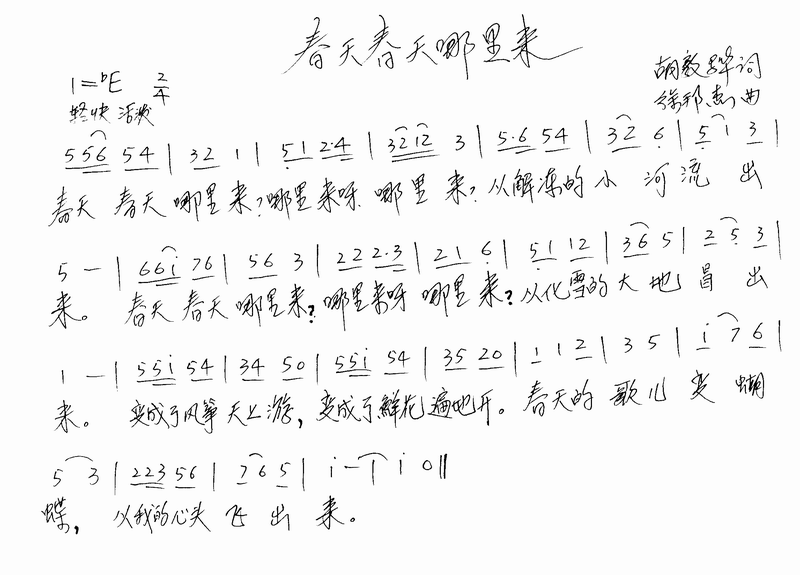 春天春天哪里来
1=♭E 2/4
胡敦骅词
轻快 活泼
徐邦杰曲
556 54 | 32 1 | 51 2·4 | 3212 3 | 5·6 54 | 32 6 | 5 1 3 |
春天 春天 哪里来?哪里来呀 哪里 来?从解冻的小 河流 出
5 — | 66i 76 | 56 3 | 22 2·3 | 21 6 | 51 12 | 36 5 | 2 5 3 |
来。 春天 春天 哪里来?哪里来呀 哪里 来?从化雪的大 地 冒 出
1 — | 55i 54 | 34 50 | 55i 54 | 35 20 | 1 1 2 | 3 5 | i 7 6 |
来。 变成了风筝 天上 游,变成了鲜花 遍地开。春天的 歌儿 变 蝴
5 3 | 223 56 | 76 5 | i — | i 0 ‖
蝶, 从我的心头 飞 出 来。